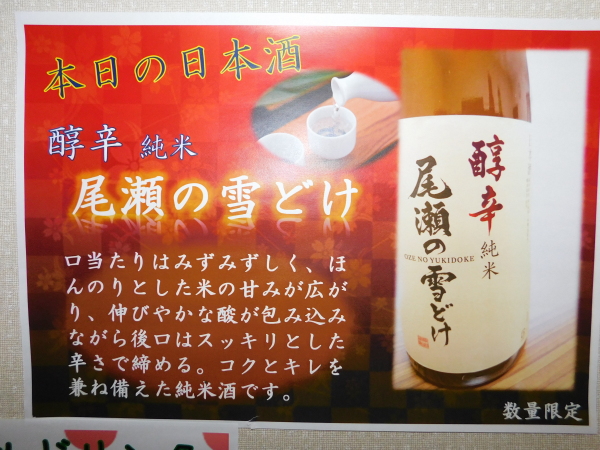 本日の日本酒
醇辛 純米
尾瀬の雪どけ
口当たりはみずみずしく、ほ
んのりとした米の甘みが広が
り、伸びやかな酸が包み込み
ながら後口はスッキリとした
辛さで締める。コクとキレを
兼ね備えた純米酒です。
醇辛 純米
尾瀬の雪どけ
OZE NO YUKIDOKE
数量限定